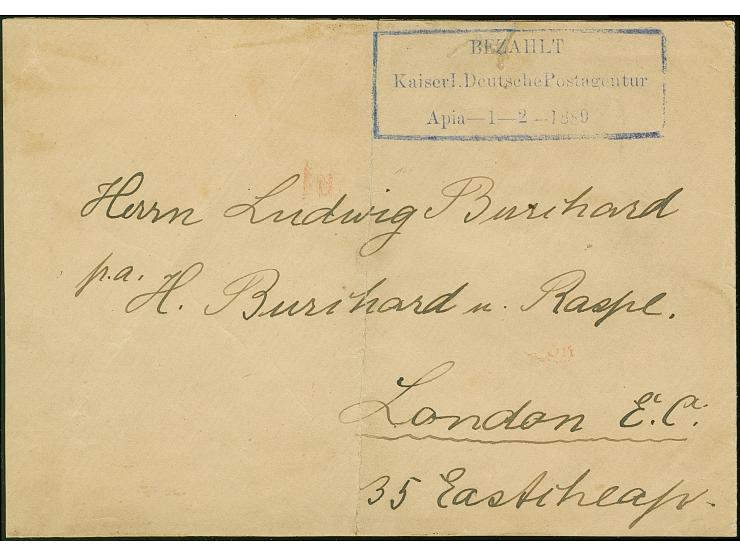 BEZAHLT
Kaiserl. Deutsche Postagentur
Apia—1—2—1889
Herrn Ludwig Burchard
p.a. H. Burchard u. Raspe.
London E. C.
35 Eastcheap.